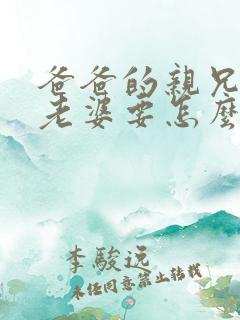 爸爸的親兄
老婆要怎麼
李駿逸
未經同意禁止轉載